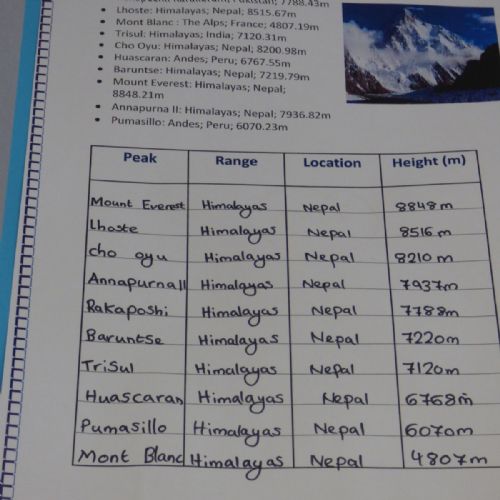 Pakistan; 7788.43m
Lhoste: Himalayas; Nepal; 8515.67m
Mont Blanc : The Alps; France; 4807.19m
Trisul: Himalayas; India; 7120.31m
Cho Oyu: Himalayas; Nepal; 8200.98m
Huascaran: Andes; Peru; 6767.55m
Baruntse: Himalayas; Nepal; 7219.79m
Mount Everest: Himalayas; Nepal;
8848.21m
Annapurna II: Himalayas; Nepal; 7936.82m
Pumasillo: Andes; Peru; 6070.23m
Peak Range Location Height (m)
Mount Everest Himalayas Nepal 8848m
Lhoste Himalayas Nepal 8516m
cho oyu Himalayas Nepal 8210m
Annapurna II Himalayas Nepal 7937m
Rakaposhi Himalayas Nepal 7788m
Baruntse Himalayas Nepal 7220m
TriSul Himalayas Nepal 7120m
Huascaran Himalayas Nepal 6768m
Pumasillo Himalayas Nepal 6070m
Mont Blanc Himalayas Nepal 4807m